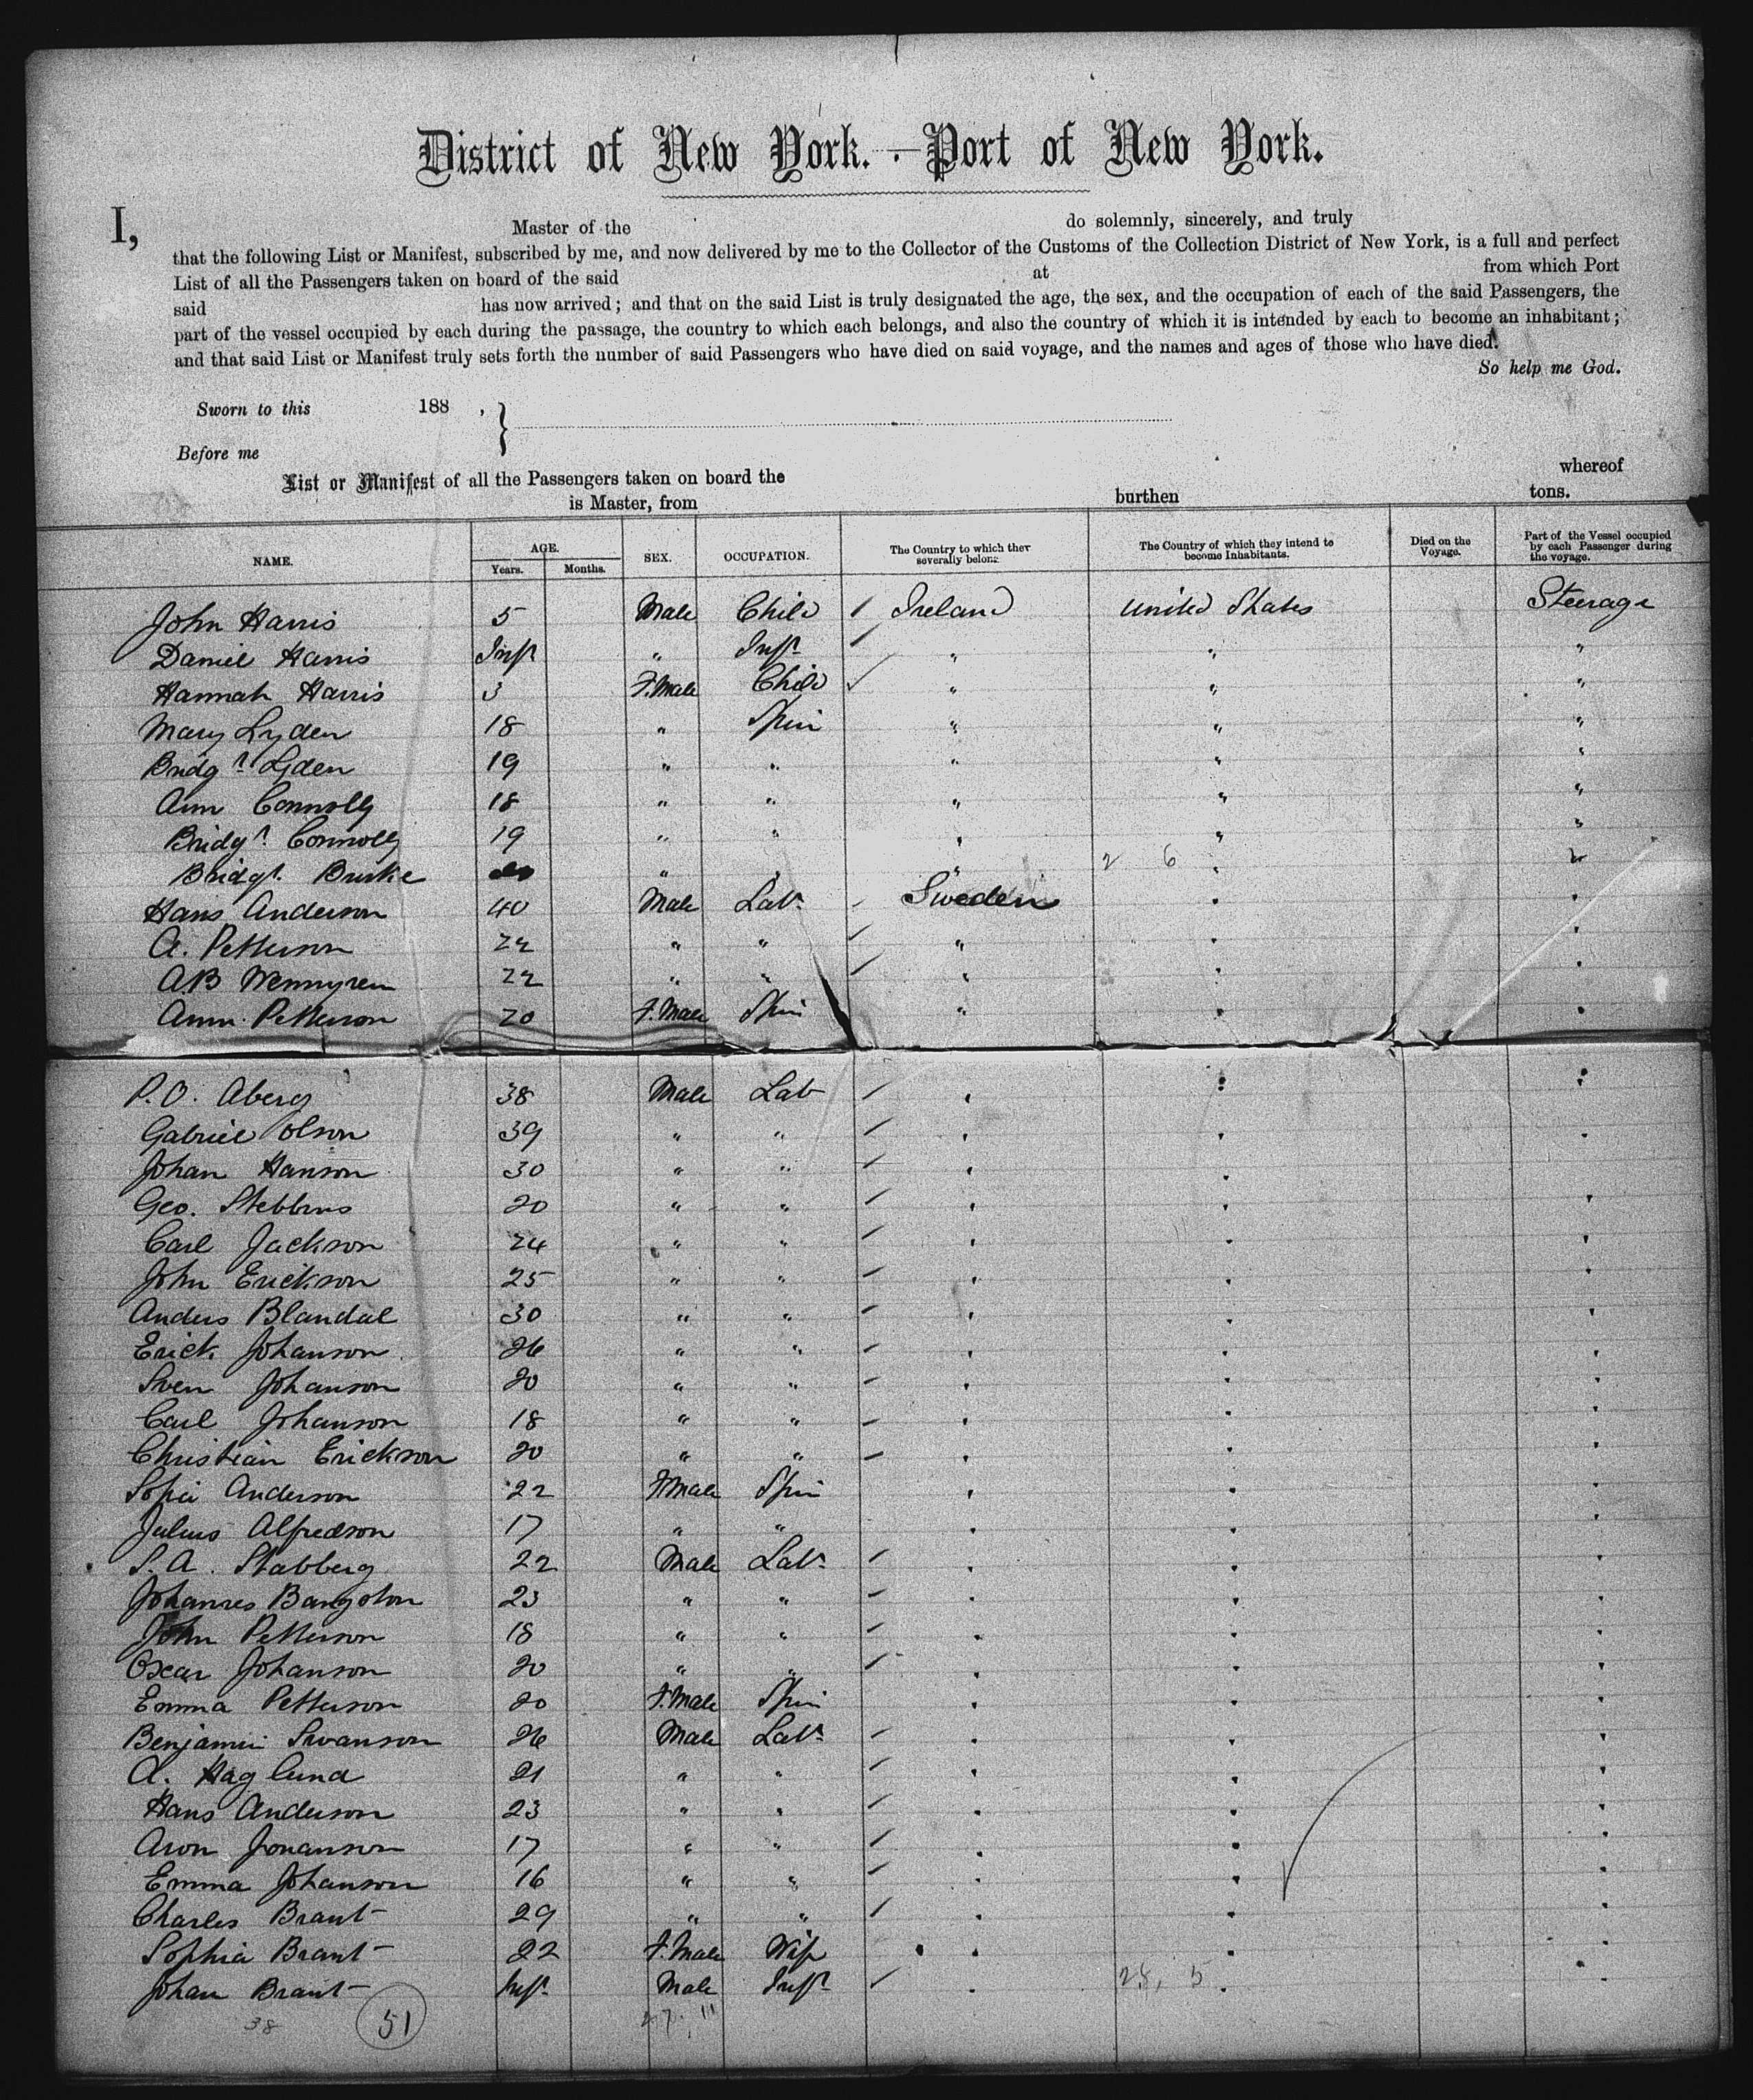 District of New York.—Port of New York.
I, Master of the do solemnly, sincerely, and truly
that the following List or Manifest, subscribed by me, and now delivered by me to the Collector of the Customs of the Collection District of New York, is a full and perfect
List of all the Passengers taken on board of the said at from which Port
said has now arrived; and that on the said List is truly designated the age, the sex, and the occupation of each of the said Passengers, the
part of the vessel occupied by each during the passage, the country to which each belongs, and also the country of which it is intended by each to become an inhabitant;
and that said List or Manifest truly sets forth the number of said Passengers who have died on said voyage, and the names and ages of those who have died.
So help me God.
Sworn to this 188 , }
Before me
List or Manifest of all the Passengers taken on board the whereof
is Master, from burthen tons.
NAME. AGE. Years. Months. SEX. OCCUPATION. The Country to which they severally belong. The Country of which they intend to become Inhabitants. Died on the Voyage. Part of the Vessel occupied by each Passenger during the voyage.
John Harris 5 Male Child ✓ Ireland United States Steerage
Daniel Harris Inft " Inft ✓ " " "
Hannah Harris 3 F.Male Child ✓ " " "
Mary Lyden 18 " Spin " " "
Bridgt Lyden 19 " " " " "
Ann Connolly 18 " " " " "
Bridgt Connolly 19 " " " " "
Bridgt. Burke " " " 2 6 " "
Hans Anderson 40 Male Labr Sweden " "
A. Petterson 22 " " ✓ " " "
A B Wennyren 22 " " ✓ " " "
Ann. Petterson 20 F.Male Spin " " "
P.O. Aberg 38 Male Lab ✓ " " "
Gabriel Olson 39 " " ✓ " " "
Johan Hanson 30 " " ✓ " "
Geo. Stebbins 20 " " ✓ " " "
Carl Jackson 24 " " ✓ " " "
John Erickson 25 " " ✓ " " "
Anders Blandal 30 " " ✓ " " "
Erick Johanson 26 " " ✓ " " "
Sven Johanson 20 " " ✓ " " "
Carl Johanson 18 " " ✓ " " "
Christian Erickson 20 " " ✓ " " "
Sofia Anderson 22 F.Male Spin " " "
Julius Alfredson 17 " " " " "
S. A. Stabberg 22 Male Labr ✓ " " "
Johannes 23 " " ✓ " " "
John Petterson 18 " " ✓ " " "
Oscar Johanson 20 " " ✓ " " "
Emma Petterson 20 F.Male Spin " " "
Benjamin Swanson 26 Male Labr ✓ " " "
A. Haglund 21 " " ✓ " " "
Hans Anderson 23 " " ✓ " " "
Aron Johanson 17 " " ✓ " " "
Emma Johanson 16 " " ✓ " " "
Charles Brant 29 " " ✓ " " "
Sophia Brant 22 F.Male Wife " " "
Johan Brant Inft Male Inft ✓ " 28, 5 " "
38 51 27, 11